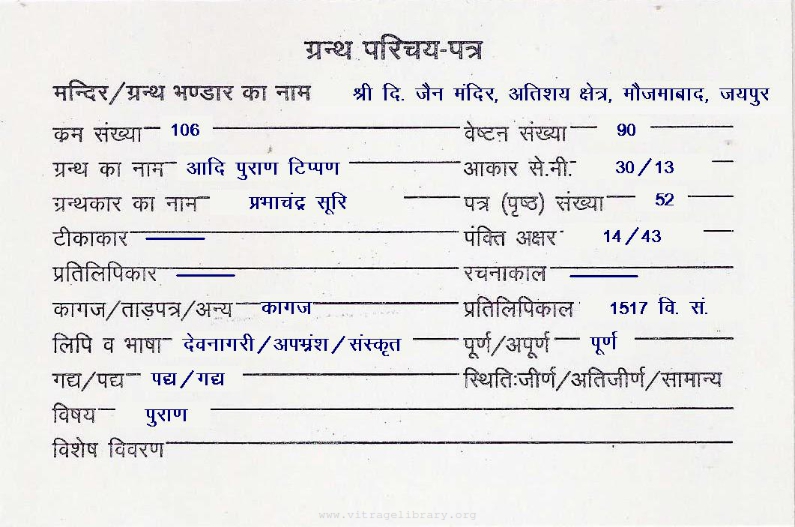 ग्रन्थ परिचय-पत्र
मन्दिर/ग्रन्थ भण्डार का नाम श्री दि. जैन मंदिर, अतिशय क्षेत्र, मौजमाबाद, जयपुर
कम संख्या 106 वेष्टन संख्या 90
ग्रन्थ का नाम आदि पुराण टिप्पण आकार से.नी. 30/13
ग्रन्थकार का नाम प्रभाचंद्र सूरि पत्र (पृष्ठ) संख्या 52
टीकाकार पंक्ति अक्षर 14/43
प्रतिलिपिकार रचनाकाल
कागज/ताड़पत्र/अन्य कागज प्रतिलिपिकाल 1517 वि. सं.
लिपि व भाषा देवनागरी/अपभ्रंश/संस्कृत पूर्ण/अपूर्ण पूर्ण
गद्य/पद्य पद्य/गद्य स्थितिःजीर्ण/अतिजीर्ण/सामान्य
विषय पुराण
विशेष विवरण
www.vitragelibrary.org